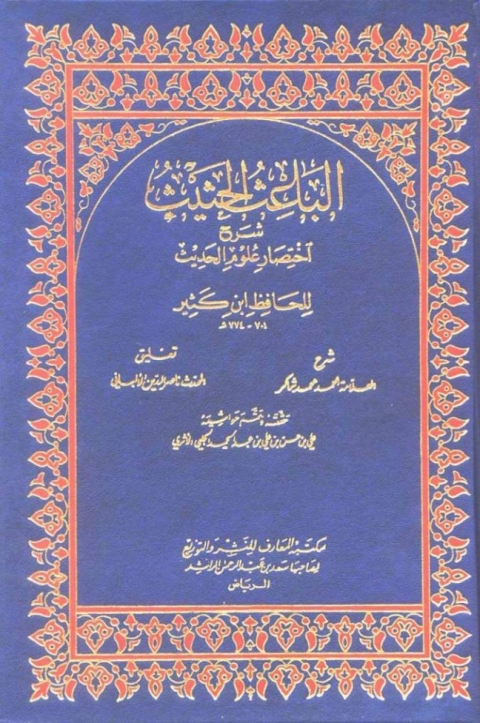 الباعث الحثيث
شرح
اختصار علوم الحديث
للحافظ ابن كثير
٧٠١ - ٧٧٤ هـ
شرح
العلامة أحمد محمد شاكر
تعليق
المحدث ناصر الدين الألباني
حققه وتمم حواشيه
علي بن حسن بن علي بن عبد الحميد الحلبي الأثري
مكتبة المعارف للنشر والتوزيع
لصاحبها سعد بن عبد الرحمن الراشد
الرياض